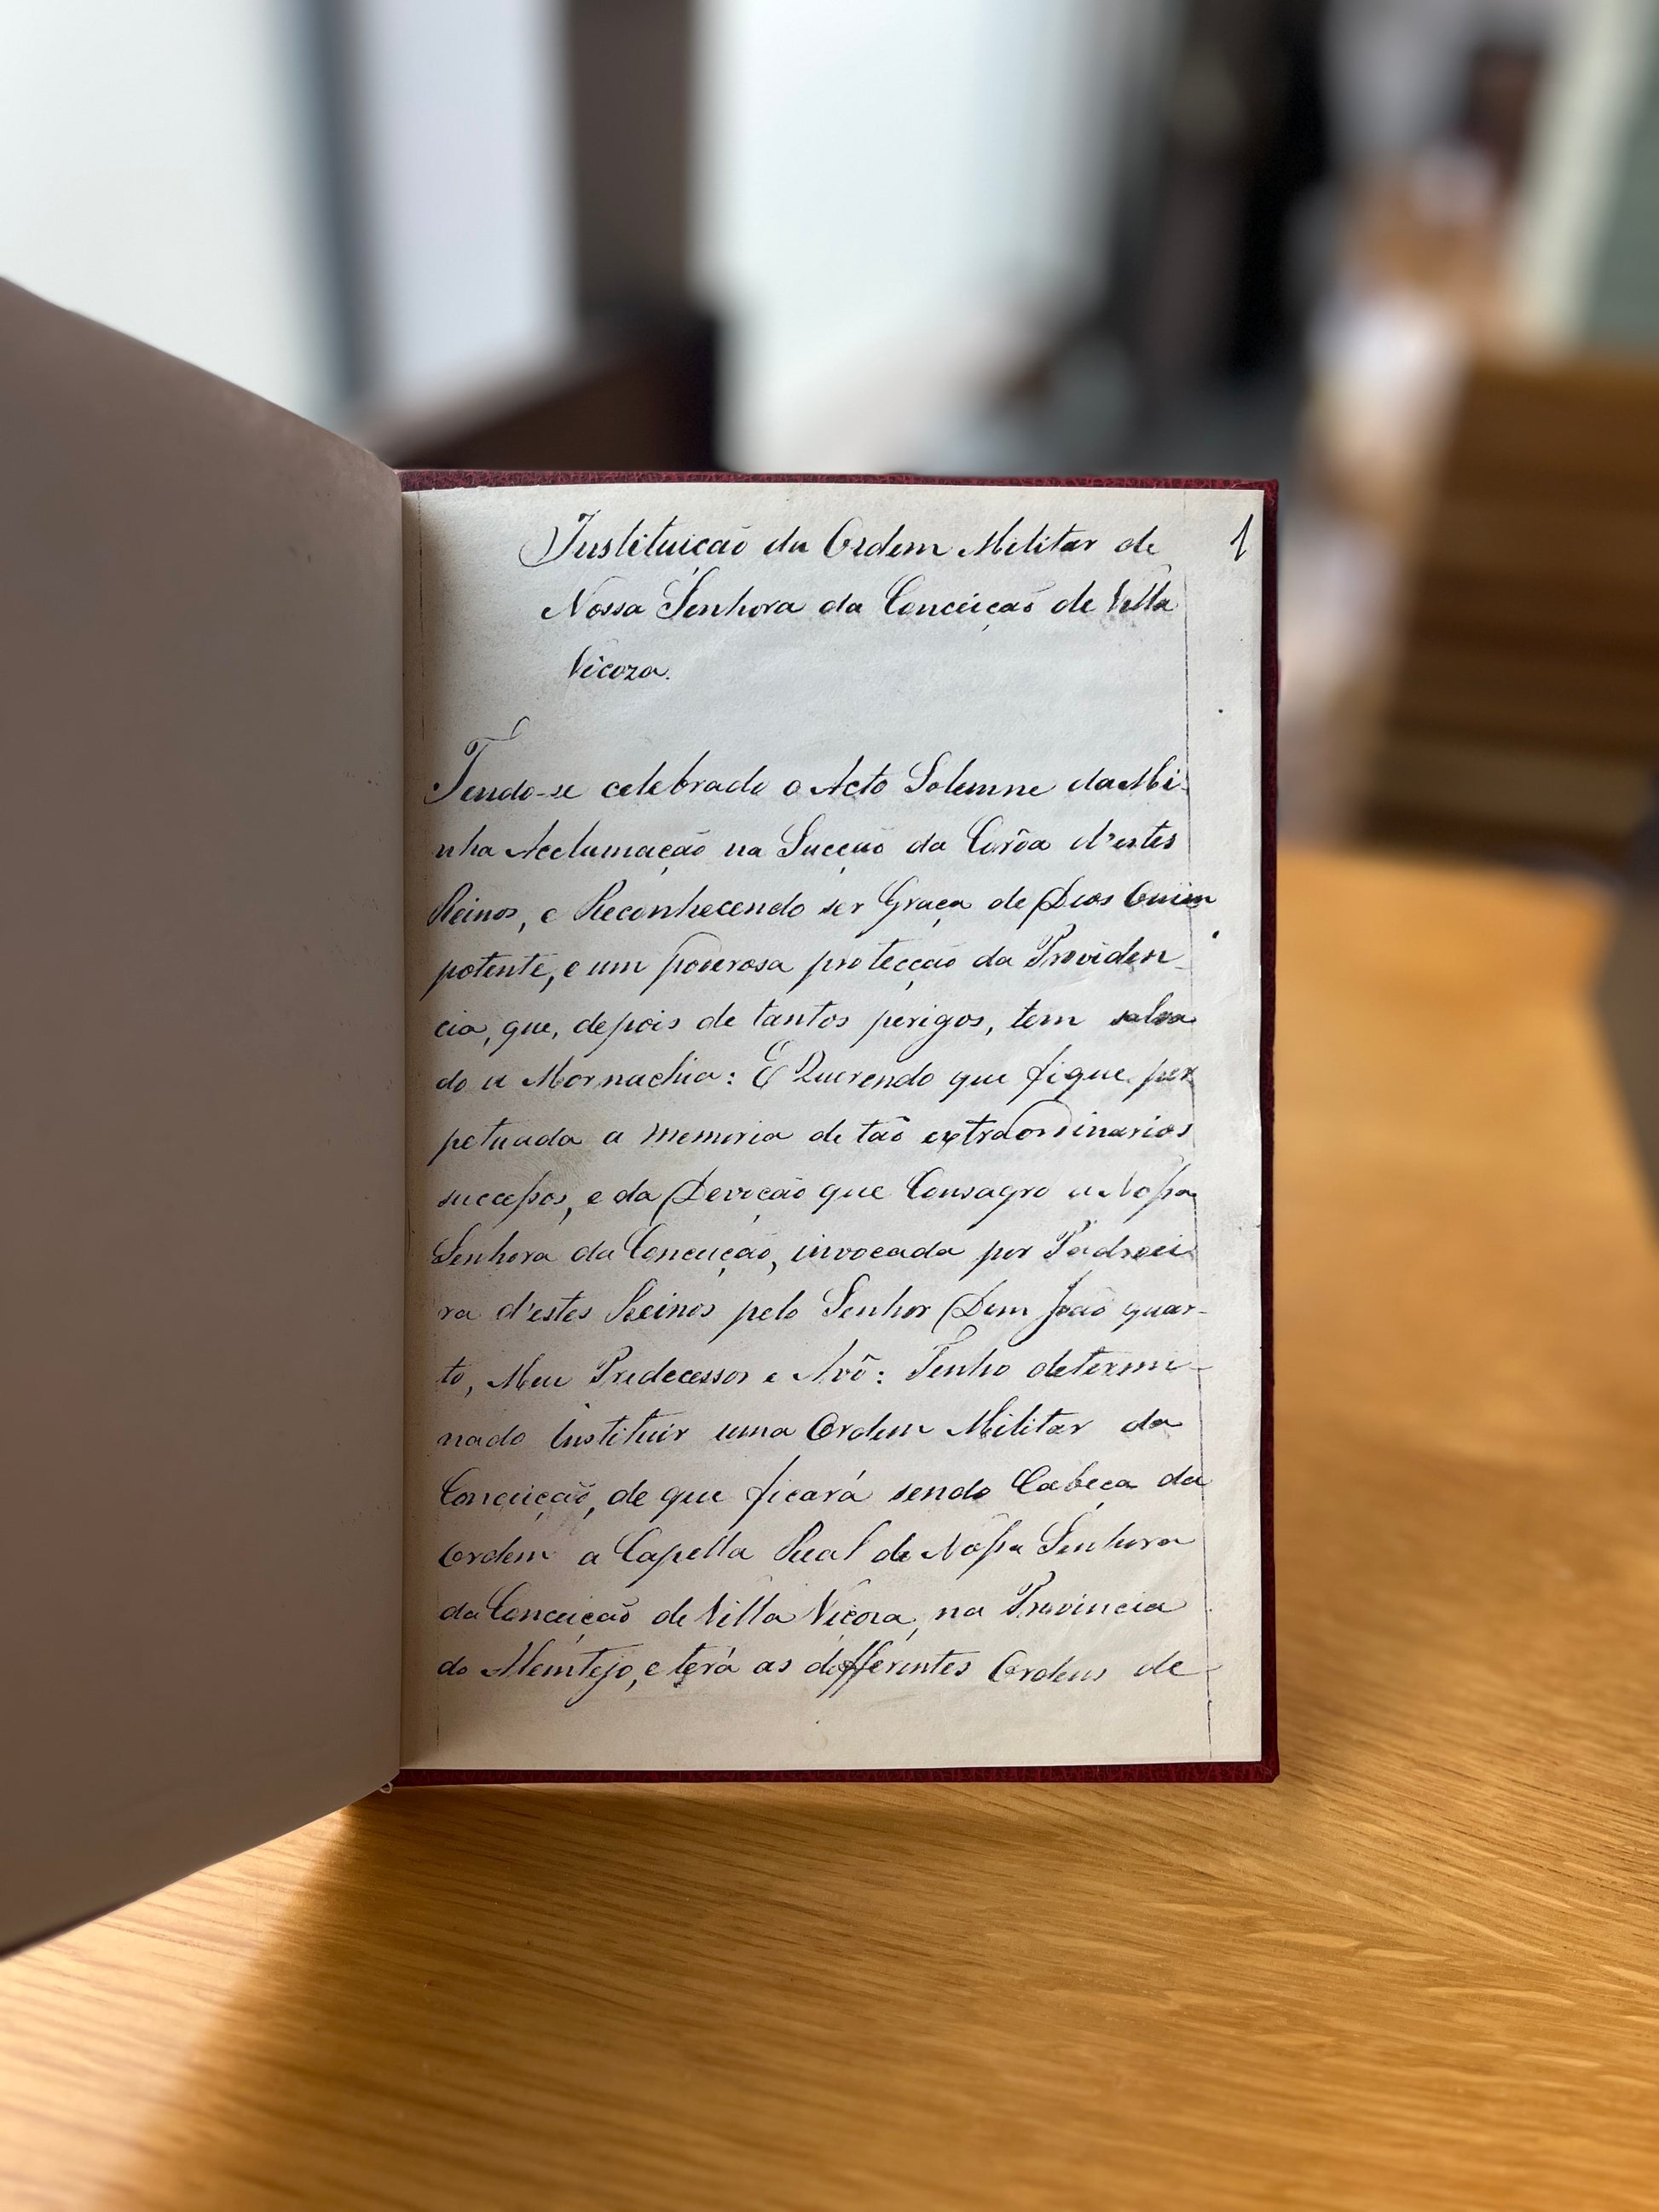 Instituição da Ordem Militar de
1
Nossa Senhora da Conceição de Villa
Viçoza.
Tendo-se celebrado o Acto Solemne da Mi-
nha Acclamação na Sucção da Corôa d'estes
Reinos, e Reconhecendo ser Graça de Deos Omni
potente, e um poderosa protecção da Providen-
cia, que, depois de tantos perigos, tem salva
do a Mornachia: E Querendo que fique per
petuada a memoria de tão extraordinarios
successos, e da Devoção que Consagro a Nossa
Senhora da Conceição, invocada por Padroei
ra d'estes Reinos pelo Senhor Dom João quar-
to, Meu Predecessor e Avô: Tenho determi-
nado Instituir uma Ordem Militar da
Conceição, de que ficará sendo Cabeça da
Ordem a Capella Real de Nossa Senhora
da Conceição de Villa Viçoza, na Provincia
do Alemtejo, e terá as differentes Ordens de